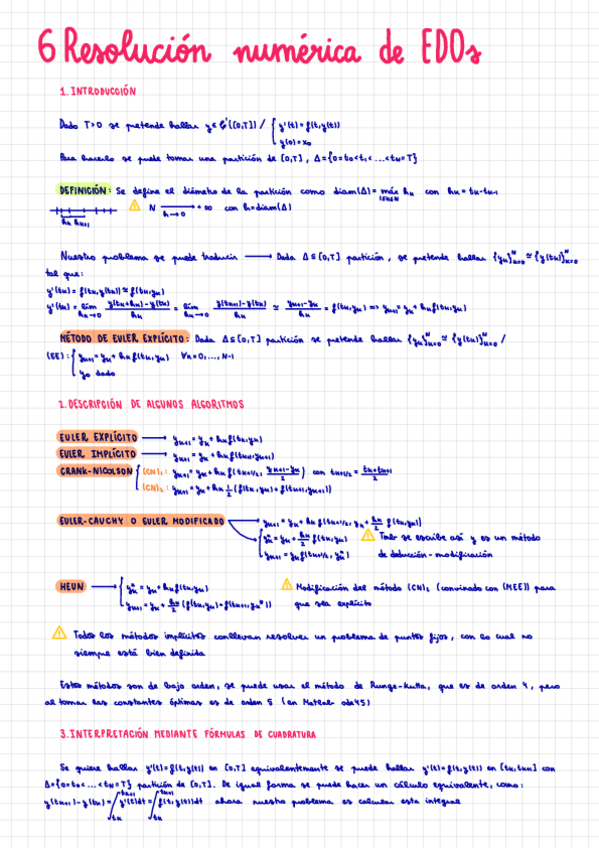 6 Resolución numérica de EDOs
1. INTRODUCCIÓN
Dado T>0 se pretende hallar y∈𝒞¹([0,T]) / { y'(t)=f(t,y(t))
y(0)=x₀
Para hacerlo se puede tomar una partición de [0,T], Δ={0=t₀<t₁<...<t_N=T}
DEFINICIÓN: Se define el diámetro de la partición como diam(Δ)= máx h_k con h_k=t_k-t_k-1
N → +∞ con h=diam(Δ)
h→0
h_k h_k+1
Nuestro problema se puede traducir → Dada Δ⊆[0,T] partición, se pretende hallar {y_k}ᴺ_k=0 ≃ {y(t_k)}ᴺ_k=0
tal que:
y'(t_k)=f(t_k,y(t_k))≃f(t_k,y_k)
y'(t_k)= lím_{h_k→0} (y(t_k+h_k)-y(t_k))/h_k = lím_{h_k→0} (y(t_k+1)-y(t_k))/h_k ≃ (y_k+1-y_k)/h_k = f(t_k,y_k) => y_k+1=y_k+h_k f(t_k,y_k)
MÉTODO DE EULER EXPLÍCITO: Dada Δ⊆[0,T] partición se pretende hallar {y_k}ᴺ_k=0 ≃ {y(t_k)}ᴺ_k=0 /
(EE): { y_k+1=y_k+h_k f(t_k,y_k) ∀k=0,...,N-1
y₀ dado
2. DESCRIPCIÓN DE ALGUNOS ALGORITMOS
EULER EXPLÍCITO → y_k+1=y_k+h_k f(t_k,y_k)
EULER IMPLÍCITO → y_k+1=y_k+h_k f(t_k+1,y_k+1)
CRANK-NICOLSON { (CN)₁: y_k+1=y_k+h_k f(t_k+1/2, (y_k+1-y_k)/2) con t_k+1/2=(t_k+t_k+1)/2
(CN)₂: y_k+1=y_k+h_k 1/2 (f(t_k,y_k)+f(t_k+1,y_k+1))
EULER-CAUCHY O EULER MODIFICADO → y_k+1=y_k+h_k f(t_k+1/2, y_k+h_k/2 f(t_k,y_k))
{ y*_k=y_k+h_k/2 f(t_k,y_k) se escribe así y es un método
y_k+1=y_k f(t_k+1/2, y*_k) de deducción-modificación
HEUN → { y*_k=y_k+h_k f(t_k,y_k) Modificación del método (CN)₂ (convinado con (MEE)) para
y_k+1=y_k+h_k/2 (f(t_k,y_k)+f(t_k+1,y*_k)) que sea explícito
Todos los métodos implícitos conllevan resolver un problema de puntos fijos, con lo cual no
siempre está bien definida
Estos métodos son de bajo orden, se puede usar el método de Runge-Kutta, que es de orden 4, pero
al tomar las constantes óptimas es de orden 5 (en Matlab ode45)
3. INTERPRETACIÓN MEDIANTE FÓRMULAS DE CUADRATURA
Se quiere hallar y'(t)=f(t,y(t)) en [0,T] equivalentemente se puede hallar y'(t)=f(t,y(t)) en [t_k,t_k+1] con
Δ={0=t₀<...<t_N=T} partición de [0,T]. De igual forma se puede hacer un cálculo equivalente, como:
y(t_k+1)-y(t_k)=∫_{t_k}^{t_k+1} y'(t)dt=∫_{t_k}^{t_k+1} f(t,y(t))dt ahora nuestro problema es calcular esta integral